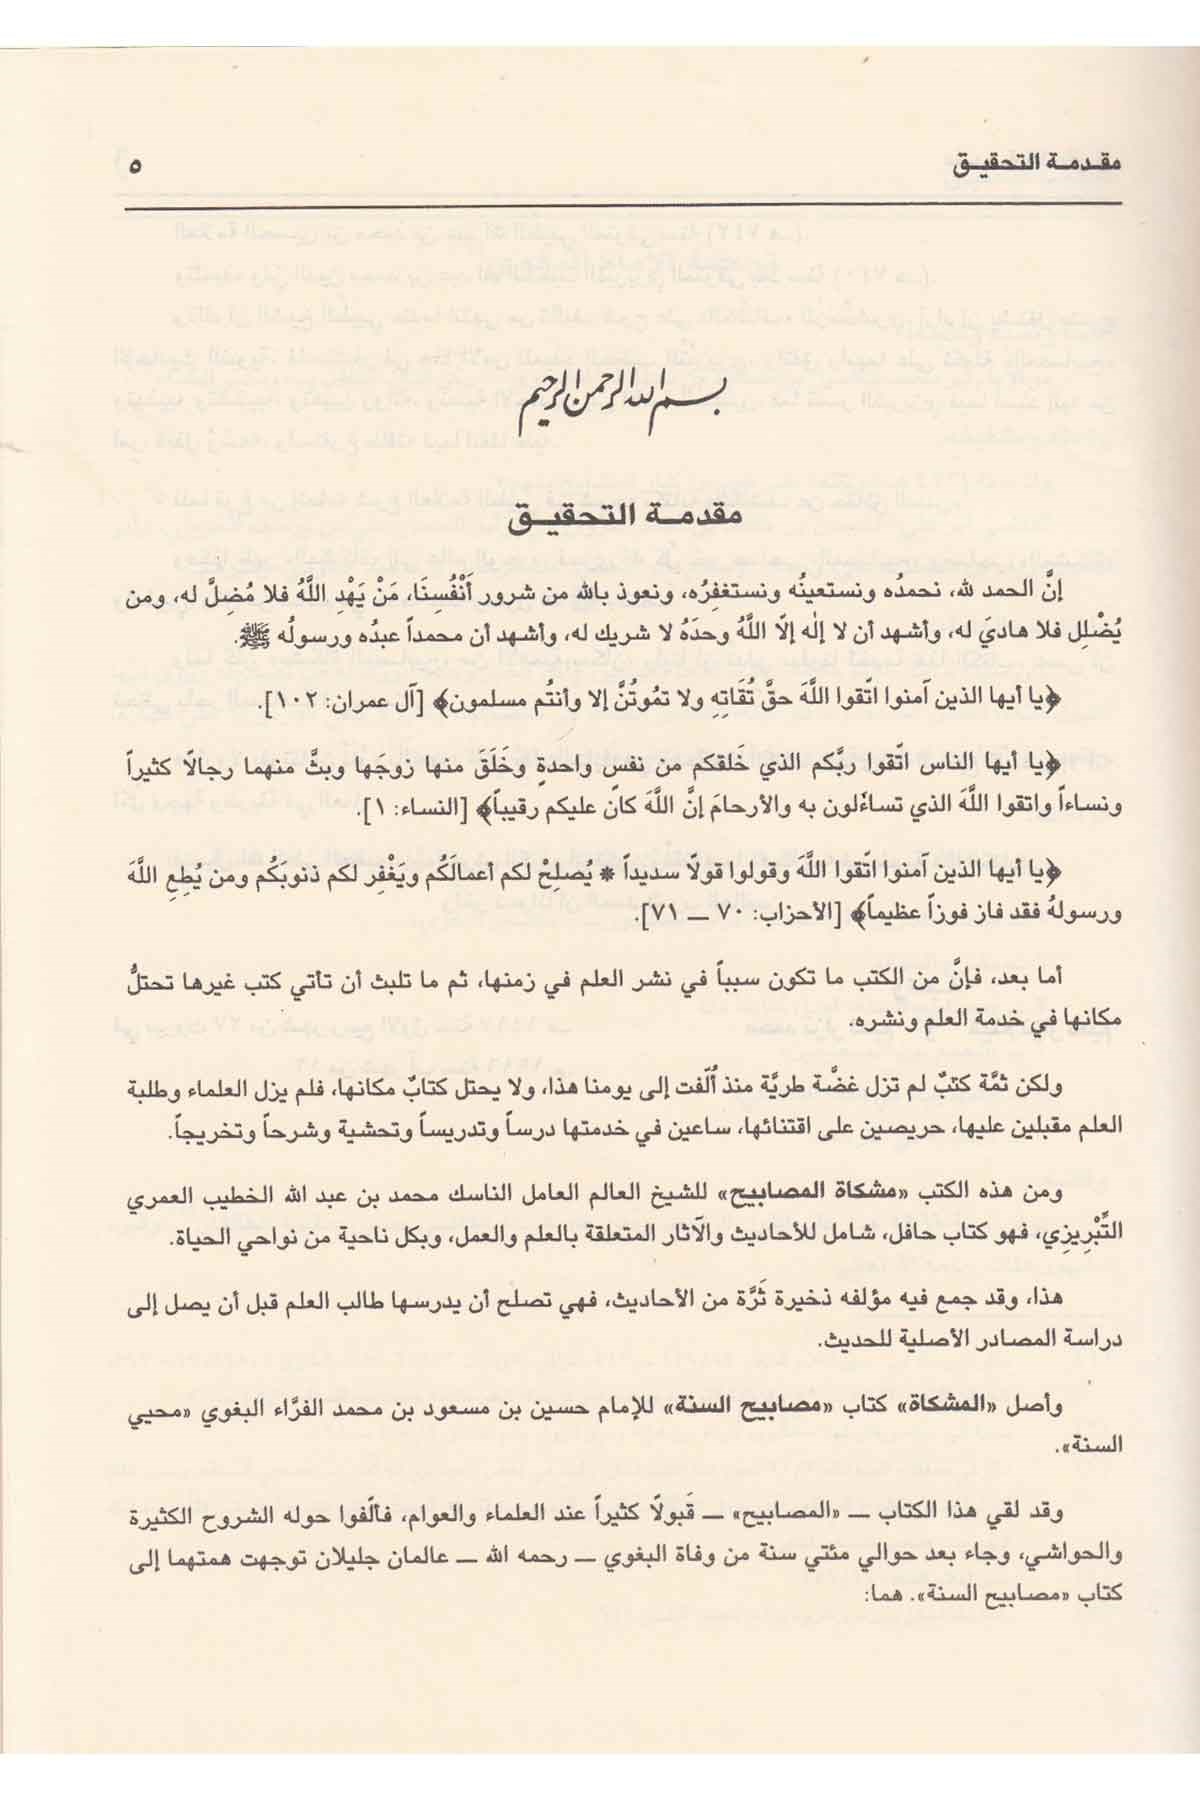 مقدمة التحقيق ٥
بسم الله الرحمن الرحيم
مقدمة التحقيق
إنَّ الحمد لله، نحمدُه ونستعينُه ونستغفرُه، ونعوذ بالله من شرور أَنْفُسِنَا، مَنْ يَهْدِ اللَّهُ فلا مُضِلَّ له، ومن
يُضْلِل فلا هاديَ له، وأشهد أن لا إلٰه إلّا اللَّهُ وحدَهُ لا شريك له، وأشهد أن محمداً عبدُه ورسولُه ﷺ.
﴿يا أيها الذين آمنوا اتّقوا اللَّهَ حقَّ تُقَاتِهِ ولا تمُوتُنَّ إلا وأنتُم مسلمون﴾ [آل عمران: ١٠٢].
﴿يا أيها الناس اتّقوا ربَّكم الذي خَلقكم من نفسٍ واحدةٍ وخَلَقَ منها زوجَها وبثَّ منهما رجالًا كثيراً
ونساءاً واتقوا اللَّهَ الذي تساءَلون به والأرحامَ إنَّ اللَّهَ كان عليكم رقيباً﴾ [النساء: ١].
﴿يا أيها الذين آمنوا اتّقوا اللَّهَ وقولوا قولًا سديداً * يُصلِحْ لكم أعمالَكُم ويَغْفِر لكم ذنوبَكُم ومن يُطِعِ اللَّهَ
ورسولهُ فقد فاز فوزاً عظيماً﴾ [الأحزاب: ٧٠ ــ ٧١].
أما بعد، فإنَّ من الكتب ما تكون سبباً في نشر العلم في زمنها، ثم ما تلبث أن تأتي كتب غيرها تحتلُّ
مكانها في خدمة العلم ونشره.
ولكن ثمَّة كتبٌ لم تزل غضَّة طريَّة منذ أُلّفت إلى يومنا هذا، ولا يحتل كتابٌ مكانها، فلم يزل العلماء وطلبة
العلم مقبلين عليها، حريصين على اقتنائها، ساعين في خدمتها درساً وتدريساً وتحشية وشرحاً وتخريجاً.
ومن هذه الكتب «مشكاة المصابيح» للشيخ العالم العامل الناسك محمد بن عبد الله الخطيب العمري
التِّبْرِيزِي، فهو كتاب حافل، شامل للأحاديث والآثار المتعلقة بالعلم والعمل، وبكل ناحية من نواحي الحياة.
هذا، وقد جمع فيه مؤلفه ذخيرة ثَرَّة من الأحاديث، فهي تصلح أن يدرسها طالب العلم قبل أن يصل إلى
دراسة المصادر الأصلية للحديث.
وأصل «المشكاة» كتاب «مصابيح السنة» للإمام حسين بن مسعود بن محمد الفرَّاء البغوي «محيي
السنة».
وقد لقي هذا الكتاب ــ «المصابيح» ــ قَبولًا كثيراً عند العلماء والعوام، فألّفوا حوله الشروح الكثيرة
والحواشي، وجاء بعد حوالي مئتي سنة من وفاة البغوي ــ رحمه الله ــ عالمان جليلان توجهت همتهما إلى
كتاب «مصابيح السنة». هما: